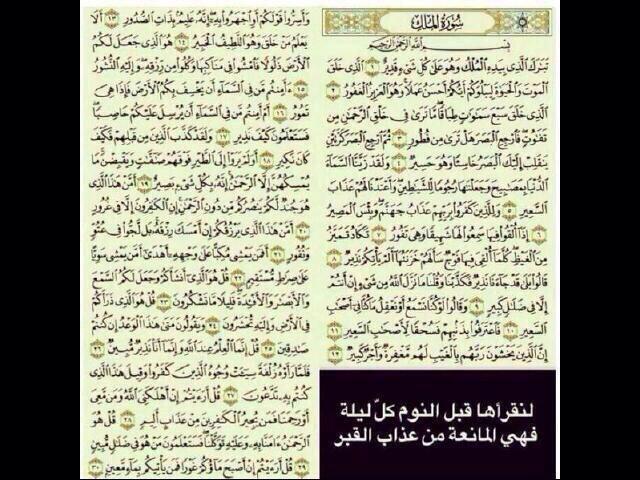 سُورَةُ المُلْكِ
بِسْمِ اللَّهِ الرَّحْمَٰنِ الرَّحِيمِ
تَبَارَكَ الَّذِي بِيَدِهِ الْمُلْكُ وَهُوَ عَلَىٰ كُلِّ شَيْءٍ قَدِيرٌ ١ الَّذِي خَلَقَ
الْمَوْتَ وَالْحَيَاةَ لِيَبْلُوَكُمْ أَيُّكُمْ أَحْسَنُ عَمَلًا وَهُوَ الْعَزِيزُ الْغَفُورُ ٢
الَّذِي خَلَقَ سَبْعَ سَمَاوَاتٍ طِبَاقًا مَّا تَرَىٰ فِي خَلْقِ الرَّحْمَٰنِ مِن
تَفَاوُتٍ فَارْجِعِ الْبَصَرَ هَلْ تَرَىٰ مِن فُطُورٍ ٣ ثُمَّ ارْجِعِ الْبَصَرَ كَرَّتَيْنِ
يَنقَلِبْ إِلَيْكَ الْبَصَرُ خَاسِئًا وَهُوَ حَسِيرٌ ٤ وَلَقَدْ زَيَّنَّا السَّمَاءَ
الدُّنْيَا بِمَصَابِيحَ وَجَعَلْنَاهَا رُجُومًا لِّلشَّيَاطِينِ وَأَعْتَدْنَا لَهُمْ عَذَابَ
السَّعِيرِ ٥ وَلِلَّذِينَ كَفَرُوا بِرَبِّهِمْ عَذَابُ جَهَنَّمَ وَبِئْسَ الْمَصِيرُ
٦ إِذَا أُلْقُوا فِيهَا سَمِعُوا لَهَا شَهِيقًا وَهِيَ تَفُورُ ٧ تَكَادُ تَمَيَّزُ
مِنَ الْغَيْظِ كُلَّمَا أُلْقِيَ فِيهَا فَوْجٌ سَأَلَهُمْ خَزَنَتُهَا أَلَمْ يَأْتِكُمْ نَذِيرٌ ٨
قَالُوا بَلَىٰ قَدْ جَاءَنَا نَذِيرٌ فَكَذَّبْنَا وَقُلْنَا مَا نَزَّلَ اللَّهُ مِن شَيْءٍ إِنْ أَنتُمْ
إِلَّا فِي ضَلَالٍ كَبِيرٍ ٩ وَقَالُوا لَوْ كُنَّا نَسْمَعُ أَوْ نَعْقِلُ مَا كُنَّا فِي أَصْحَابِ
السَّعِيرِ ١٠ فَاعْتَرَفُوا بِذَنبِهِمْ فَسُحْقًا لِّأَصْحَابِ السَّعِيرِ ١١
إِنَّ الَّذِينَ يَخْشَوْنَ رَبَّهُم بِالْغَيْبِ لَهُم مَّغْفِرَةٌ وَأَجْرٌ كَبِيرٌ ١٢
وَأَسِرُّوا قَوْلَكُمْ أَوِ اجْهَرُوا بِهِ إِنَّهُ عَلِيمٌ بِذَاتِ الصُّدُورِ ١٣ أَلَا
يَعْلَمُ مَنْ خَلَقَ وَهُوَ اللَّطِيفُ الْخَبِيرُ ١٤ هُوَ الَّذِي جَعَلَ لَكُمُ
الْأَرْضَ ذَلُولًا فَامْشُوا فِي مَنَاكِبِهَا وَكُلُوا مِن رِّزْقِهِ وَإِلَيْهِ النُّشُورُ
١٥ أَأَمِنتُم مَّن فِي السَّمَاءِ أَن يَخْسِفَ بِكُمُ الْأَرْضَ فَإِذَا هِيَ
تَمُورُ ١٦ أَمْ أَمِنتُم مَّن فِي السَّمَاءِ أَن يُرْسِلَ عَلَيْكُمْ حَاصِبًا
فَسَتَعْلَمُونَ كَيْفَ نَذِيرِ ١٧ وَلَقَدْ كَذَّبَ الَّذِينَ مِن قَبْلِهِمْ فَكَيْفَ
كَانَ نَكِيرِ ١٨ أَوَلَمْ يَرَوْا إِلَى الطَّيْرِ فَوْقَهُمْ صَافَّاتٍ وَيَقْبِضْنَ مَا
يُمْسِكُهُنَّ إِلَّا الرَّحْمَٰنُ إِنَّهُ بِكُلِّ شَيْءٍ بَصِيرٌ ١٩ أَمَّنْ هَٰذَا الَّذِي
هُوَ جُندٌ لَّكُمْ يَنصُرُكُم مِّن دُونِ الرَّحْمَٰنِ إِنِ الْكَافِرُونَ إِلَّا فِي غُرُورٍ
٢٠ أَمَّنْ هَٰذَا الَّذِي يَرْزُقُكُمْ إِنْ أَمْسَكَ رِزْقَهُ بَل لَّجُّوا فِي عُتُوٍّ
وَنُفُورٍ ٢١ أَفَمَن يَمْشِي مُكِبًّا عَلَىٰ وَجْهِهِ أَهْدَىٰ أَمَّن يَمْشِي سَوِيًّا
عَلَىٰ صِرَاطٍ مُّسْتَقِيمٍ ٢٢ قُلْ هُوَ الَّذِي أَنشَأَكُمْ وَجَعَلَ لَكُمُ السَّمْعَ
وَالْأَبْصَارَ وَالْأَفْئِدَةَ قَلِيلًا مَّا تَشْكُرُونَ ٢٣ قُلْ هُوَ الَّذِي ذَرَأَكُمْ
فِي الْأَرْضِ وَإِلَيْهِ تُحْشَرُونَ ٢٤ وَيَقُولُونَ مَتَىٰ هَٰذَا الْوَعْدُ إِن كُنتُمْ
صَادِقِينَ ٢٥ قُلْ إِنَّمَا الْعِلْمُ عِندَ اللَّهِ وَإِنَّمَا أَنَا نَذِيرٌ مُّبِينٌ ٢٦
فَلَمَّا رَأَوْهُ زُلْفَةً سِيئَتْ وُجُوهُ الَّذِينَ كَفَرُوا وَقِيلَ هَٰذَا الَّذِي
كُنتُم بِهِ تَدَّعُونَ ٢٧ قُلْ أَرَأَيْتُمْ إِنْ أَهْلَكَنِيَ اللَّهُ وَمَن مَّعِيَ
أَوْ رَحِمَنَا فَمَن يُجِيرُ الْكَافِرِينَ مِنْ عَذَابٍ أَلِيمٍ ٢٨ قُلْ هُوَ
الرَّحْمَٰنُ آمَنَّا بِهِ وَعَلَيْهِ تَوَكَّلْنَا فَسَتَعْلَمُونَ مَنْ هُوَ فِي ضَلَالٍ مُّبِينٍ
٢٩ قُلْ أَرَأَيْتُمْ إِنْ أَصْبَحَ مَاؤُكُمْ غَوْرًا فَمَن يَأْتِيكُم بِمَاءٍ مَّعِينٍ ٣٠
لنقرأها قبل النوم كلّ ليلة
فهي المانعة من عذاب القبر